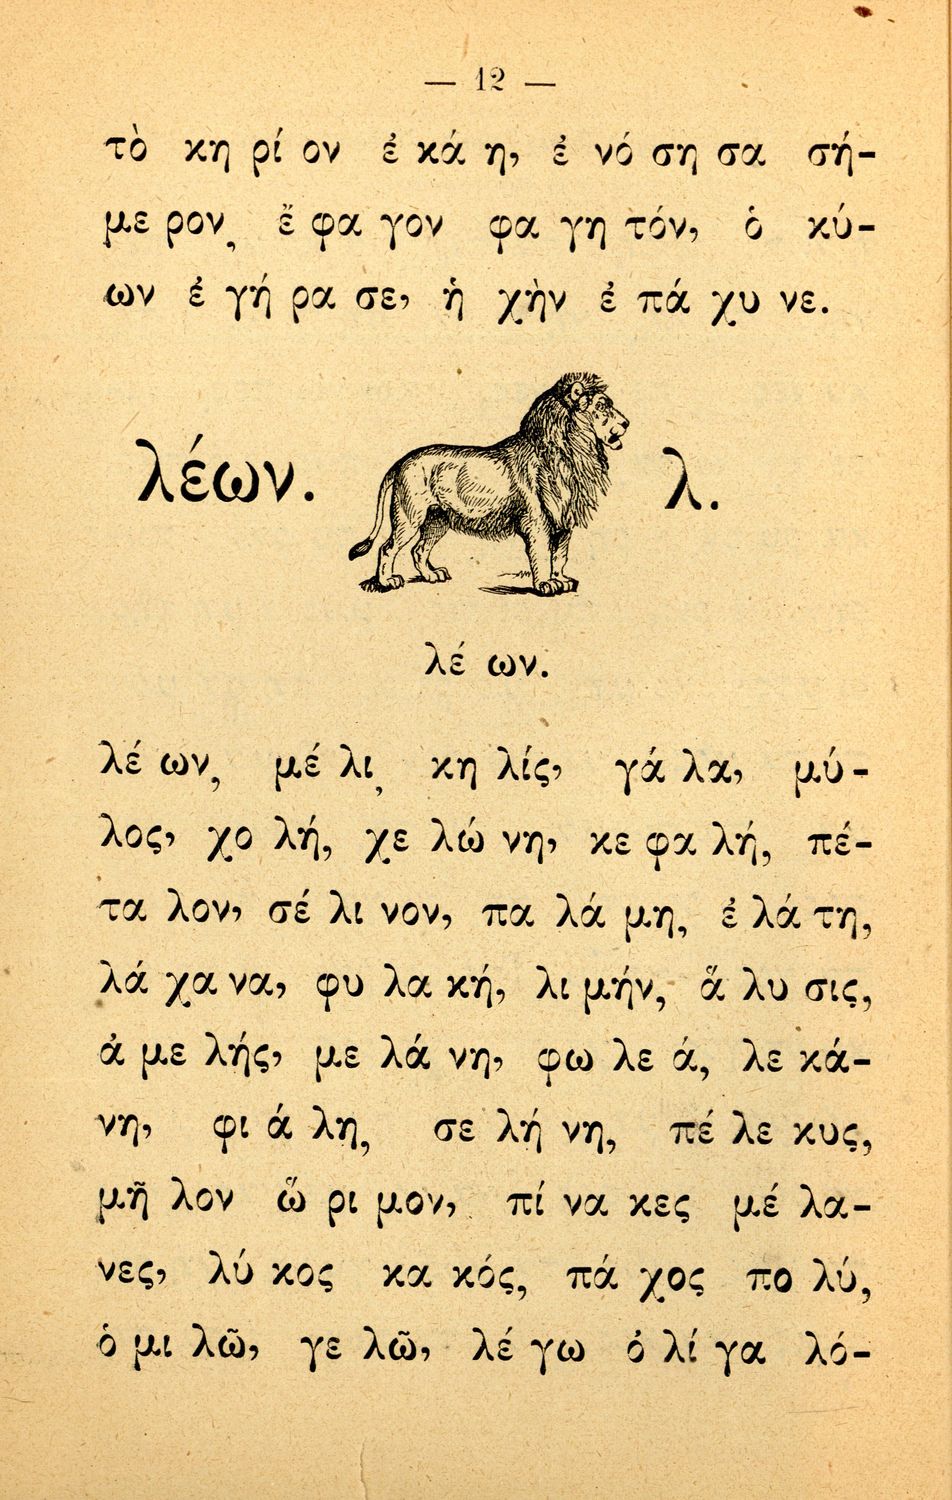 — 12 —
τὸ κη ρί ον ἐ κά η, ἐ νό ση σα σή-
με ρον, ἔ φα γον φα γη τόν, ὁ κύ-
ων ἐ γή ρα σε, ἡ χὴν ἐ πά χυ νε.
λέων. λ.
λέ ων.
λέ ων, μέ λι, κη λίς, γά λα, μύ-
λος, χο λή, χε λώ νη, κε φα λή, πέ-
τα λον, σέ λι νον, πα λά μη, ἐ λά τη,
λά χα να, φυ λα κή, λι μήν, ἅ λυ σις,
ἀ με λής, με λά νη, φω λε ά, λε κά-
νη, φι ά λη, σε λή νη, πέ λε κυς,
μῆ λον ὥ ρι μον, πί να κες μέ λα-
νες, λύ κος κα κός, πά χος πο λύ,
ὁ μι λῶ, γε λῶ, λέ γω ὀ λί γα λό-